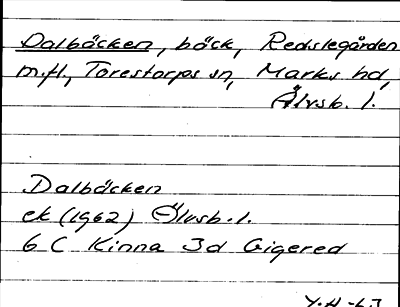 Dalbäcken, bäck, Redslegården
m.fl., Torestorps sn, Marks hd,
Älvsb. l.
Dalbäcken
ek (1962) Älvsb. l.
6 C Kinna 3d Gigered